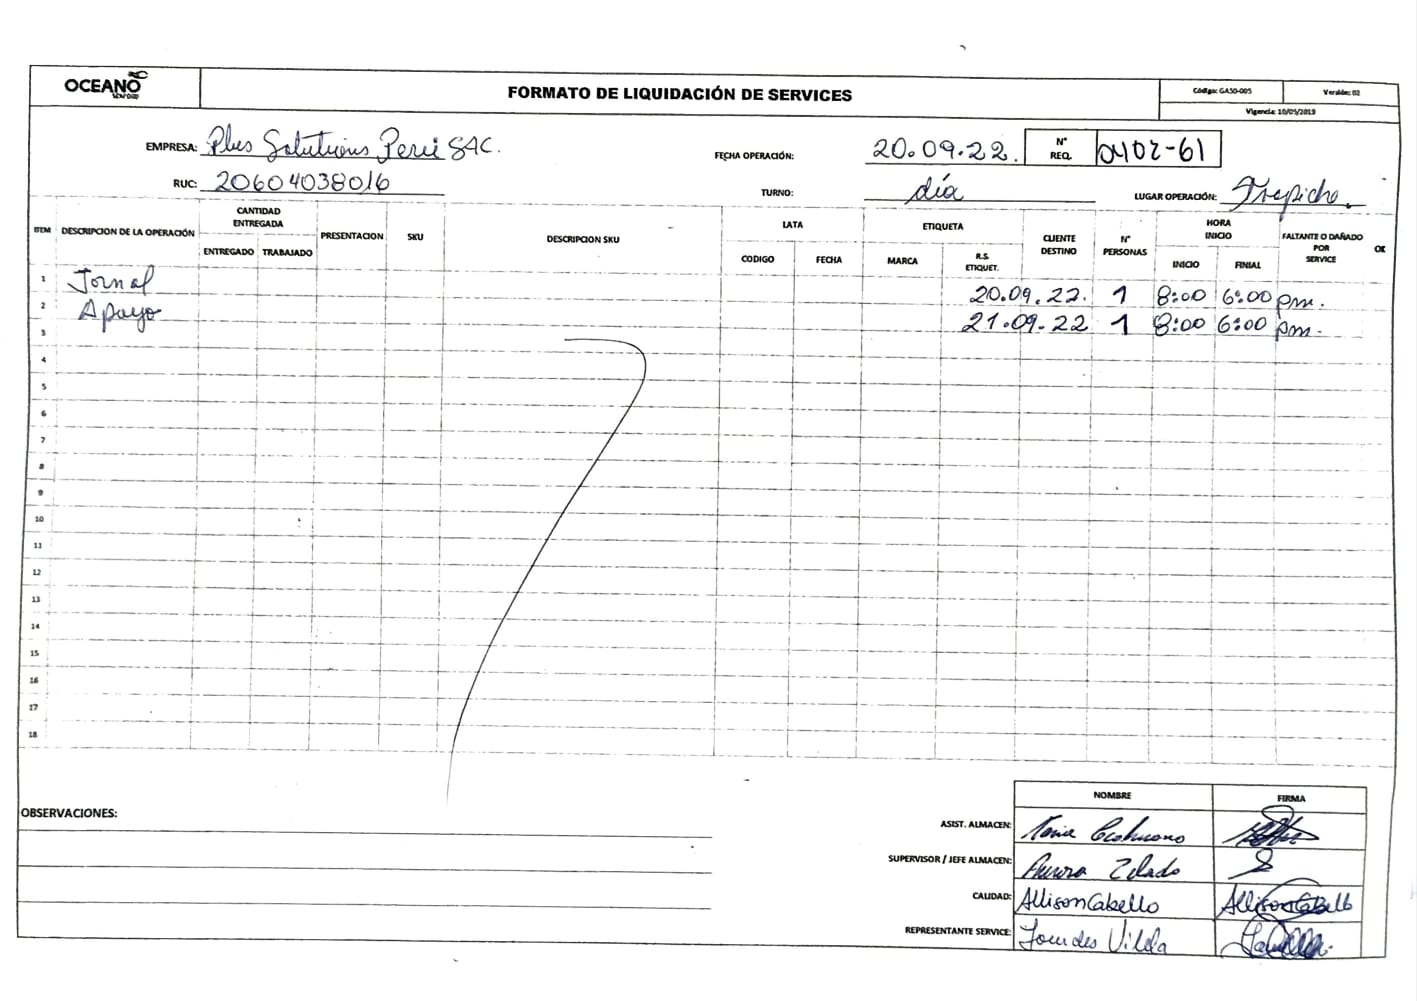 OCEANO
SEAFOOD
FORMATO DE LIQUIDACIÓN DE SERVICES
Código: GASO-005 Versión: 02
Vigencia: 10/05/2019
EMPRESA: Plus Solutions Perú SAC.
FECHA OPERACIÓN: 20.09.22.
N° REQ. 0402-61
RUC: 20604038016
TURNO: día
LUGAR OPERACIÓN: Trapiche.
ITEM DESCRIPCION DE LA OPERACIÓN CANTIDAD ENTREGADA PRESENTACION SKU DESCRIPCION SKU LATA ETIQUETA CLIENTE DESTINO N° PERSONAS HORA INICIO FALTANTE O DAÑADO POR SERVICE OK
ENTREGADO TRABAJADO CODIGO FECHA MARCA R.S. ETIQUET. INICIO FINIAL
1 Jornal 20.09.22. 1 8:00 6:00 pm.
2 Apoyo 21.09.22 1 8:00 6:00 pm.
3
4
5
6
7
8
9
10
11
12
13
14
15
16
17
18
OBSERVACIONES:
NOMBRE FIRMA
ASIST. ALMACEN:
SUPERVISOR / JEFE ALMACEN: Aurora Zelado
CALIDAD: Allison Cabello Allison Cabello
REPRESENTANTE SERVICE: Lourdes Vilela